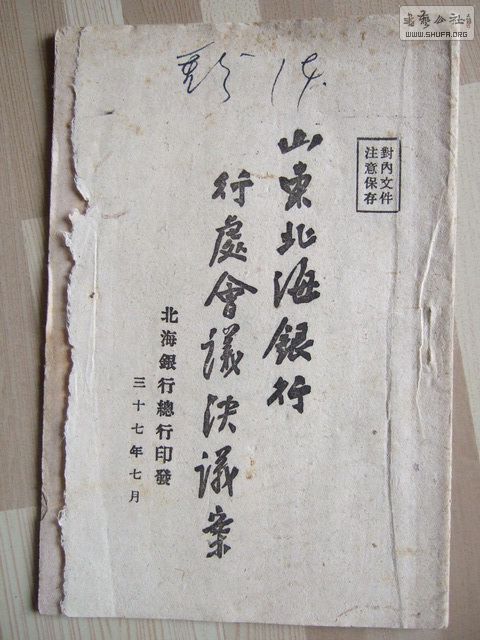 對內文件
注意保存
山東北海銀行
行處會議決議案
北海銀行總行印發
三十七年七月
书艺公社
WWW.SHUFA.ORG